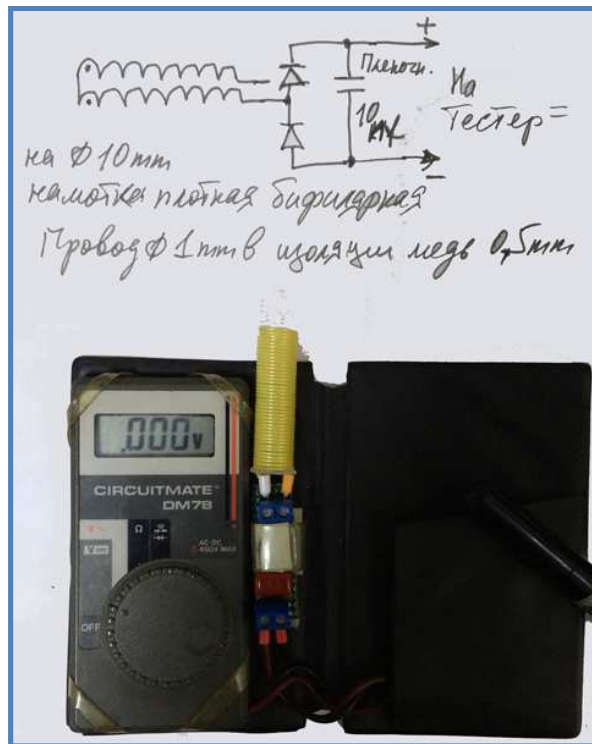 +
Пленочн.
10 мк
На
Тестер =
-
на Ф 10mm
намотка плотная бифилярная
Провод Ф 1mm в изоляции медь 0,5mm
.000V
CIRCUITMATE™
DM78
Ω
V
AC-DC
450V MAX
OFF